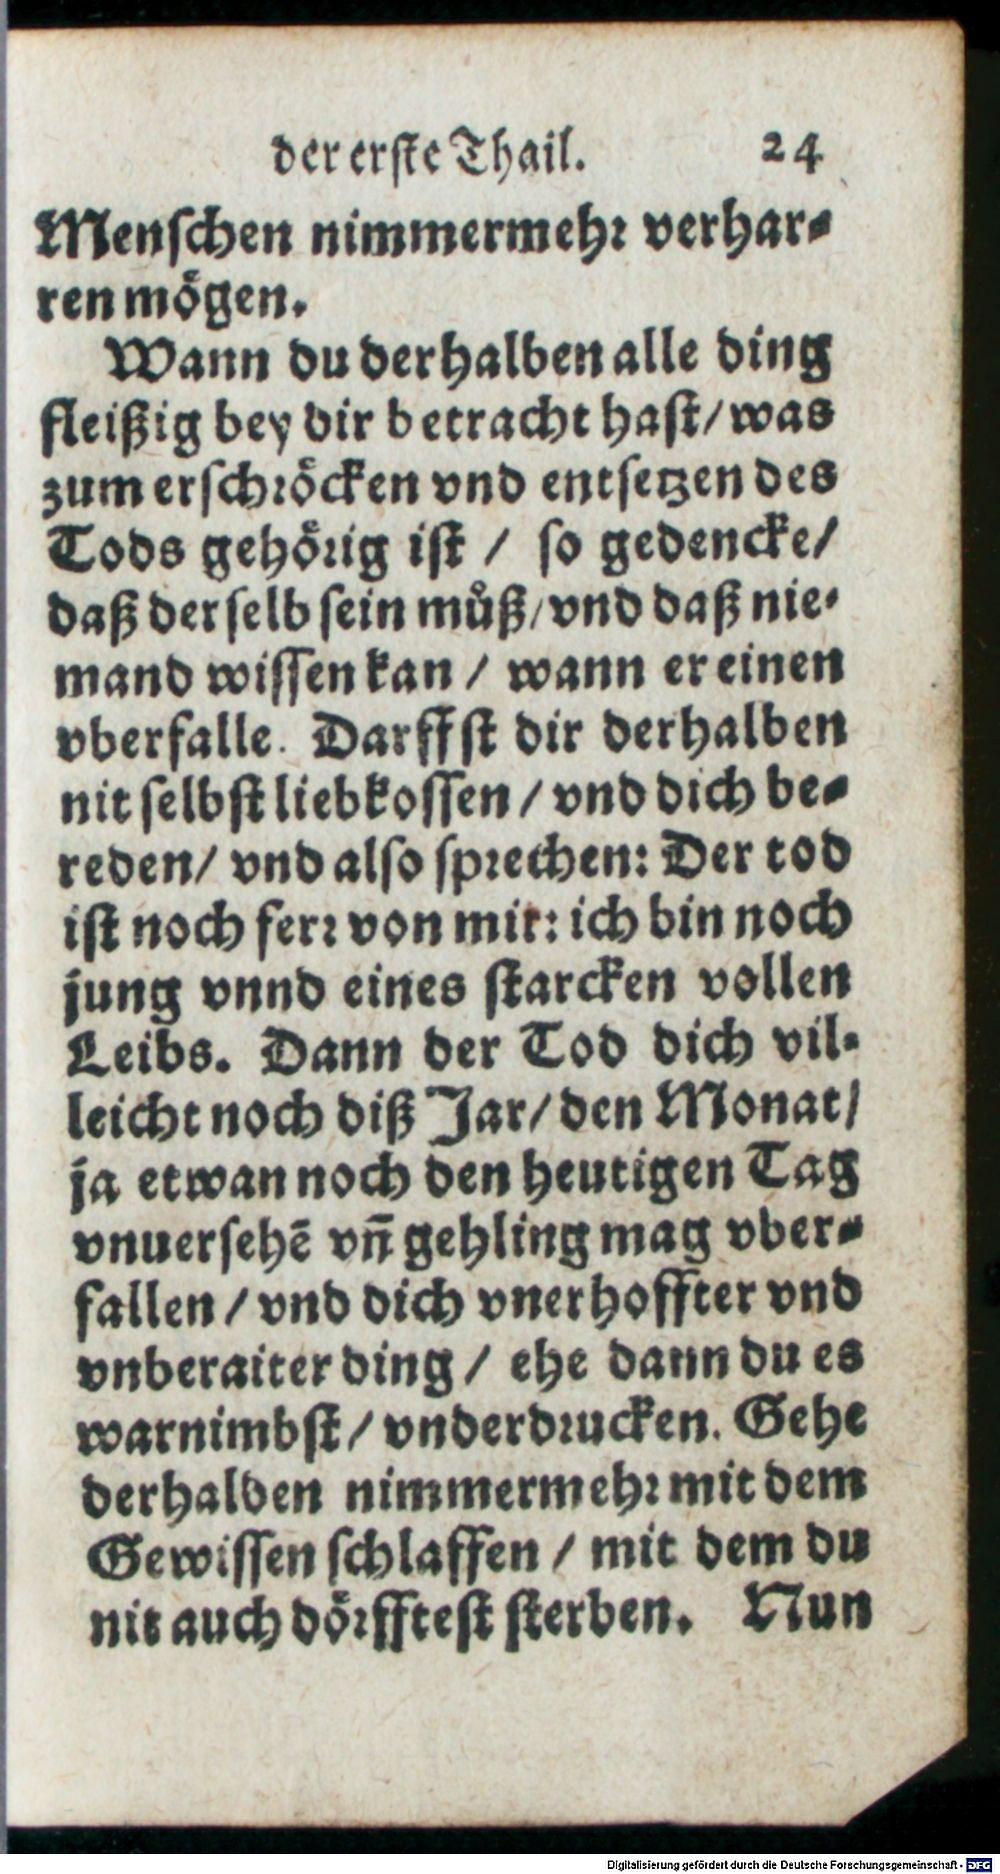 der erste Thail. 24
Menschen nimmermehr verhar-
ren mögen.
Wann du derhalben alle ding
fleißig bey dir betracht hast/ was
zum erschröcken vnd entsetzen des
Tods gehörig ist / so gedencke/
daß derselb sein můß/ vnd daß nie-
mand wissen kan / wann er einen
vberfalle. Darffst dir derhalben
nit selbst liebkossen / vnd dich be-
reden/ vnd also sprechen: Der tod
ist noch ferr von mir: ich bin noch
jung vnnd eines starcken vollen
Leibs. Dann der Tod dich vil-
leicht noch diß Jar/ den Monat/
ja etwan noch den heutigen Tag
vnuersehē vñ gehling mag vber-
fallen / vnd dich vnerhoffter vnd
vnberaiter ding / ehe dann du es
warnimbst / vnderdrucken. Gehe
derhalben nimmermehr mit dem
Gewissen schlaffen / mit dem du
nit auch dörfftest sterben. Nun
Digitalisierung gefördert durch die Deutsche Forschungsgemeinschaft - DFG